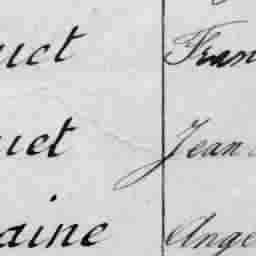 uct Fran
uet Jean
aine Ange